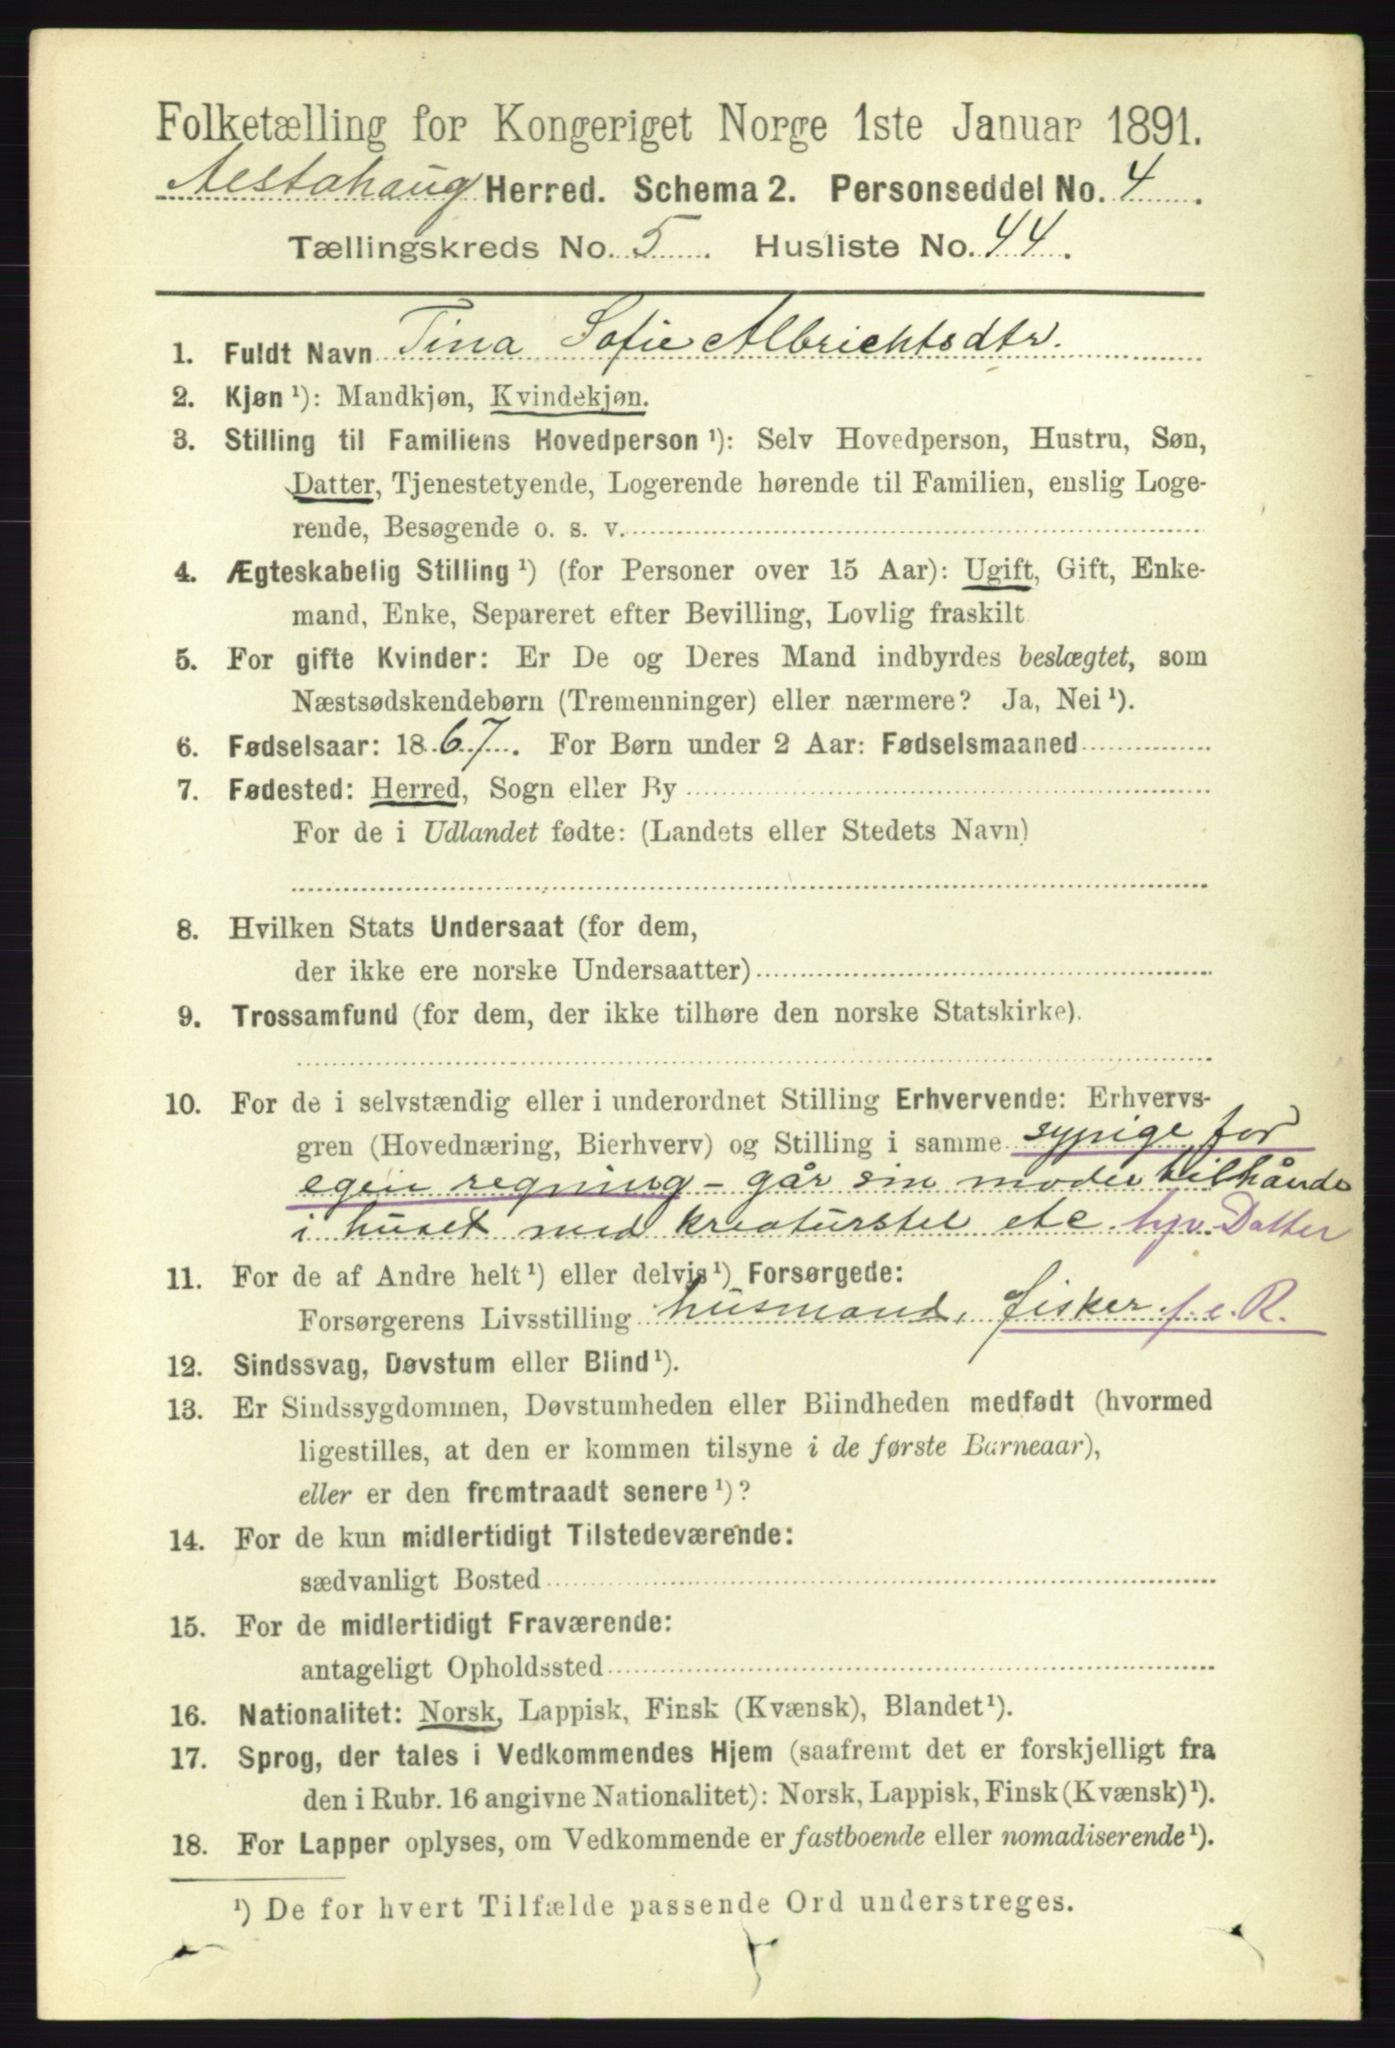 Folketælling for Kongeriget Norge 1ste Januar 1891.
Alstahaug Herred. Schema 2. Personseddel No. 4.
Tællingskreds No. 5. Husliste No. 44.
1. Fuldt Navn Tina Sofie Albrichtsdtr.
2. Kjøn ¹): Mandkjøn, Kvindekjøn.
3. Stilling til Familiens Hovedperson ¹): Selv Hovedperson, Hustru, Søn,
Datter, Tjenestetyende, Logerende hørende til Familien, enslig Loge-
rende, Besøgende o. s. v.
4. Ægteskabelig Stilling ¹) (for Personer over 15 Aar): Ugift, Gift, Enke-
mand, Enke, Separeret efter Bevilling, Lovlig fraskilt
5. For gifte Kvinder: Er De og Deres Mand indbyrdes beslægtet, som
Næstsødskendebørn (Tremenninger) eller nærmere? Ja, Nei ¹).
6. Fødselsaar: 1867. For Børn under 2 Aar: Fødselsmaaned
7. Fødested: Herred, Sogn eller By
For de i Udlandet fødte: (Landets eller Stedets Navn)
8. Hvilken Stats Undersaat (for dem,
der ikke ere norske Undersaatter)
9. Trossamfund (for dem, der ikke tilhøre den norske Statskirke).
10. For de i selvstændig eller i underordnet Stilling Erhvervende: Erhvervs-
gren (Hovednæring, Bierhverv) og Stilling i samme sypige for
egen regning – går sin moder tilhånde
i huset med kreaturstel etc hjv. Datter
11. For de af Andre helt ¹) eller delvis ¹) Forsørgede:
Forsørgerens Livsstilling husmand, fisker f. e. R.
12. Sindssvag, Døvstum eller Blind ¹).
13. Er Sindssygdommen, Døvstumheden eller Blindheden medfødt (hvormed
ligestilles, at den er kommen tilsyne i de første Barneaar),
eller er den fremtraadt senere ¹)?
14. For de kun midlertidigt Tilstedeværende:
sædvanligt Bosted
15. For de midlertidigt Fraværende:
antageligt Opholdssted
16. Nationalitet: Norsk, Lappisk, Finsk (Kvænsk), Blandet ¹).
17. Sprog, der tales i Vedkommendes Hjem (saafremt det er forskjelligt fra
den i Rubr. 16 angivne Nationalitet): Norsk, Lappisk, Finsk (Kvænsk) ¹).
18. For Lapper oplyses, om Vedkommende er fastboende eller nomadiserende ¹).
¹) De for hvert Tilfælde passende Ord understreges.